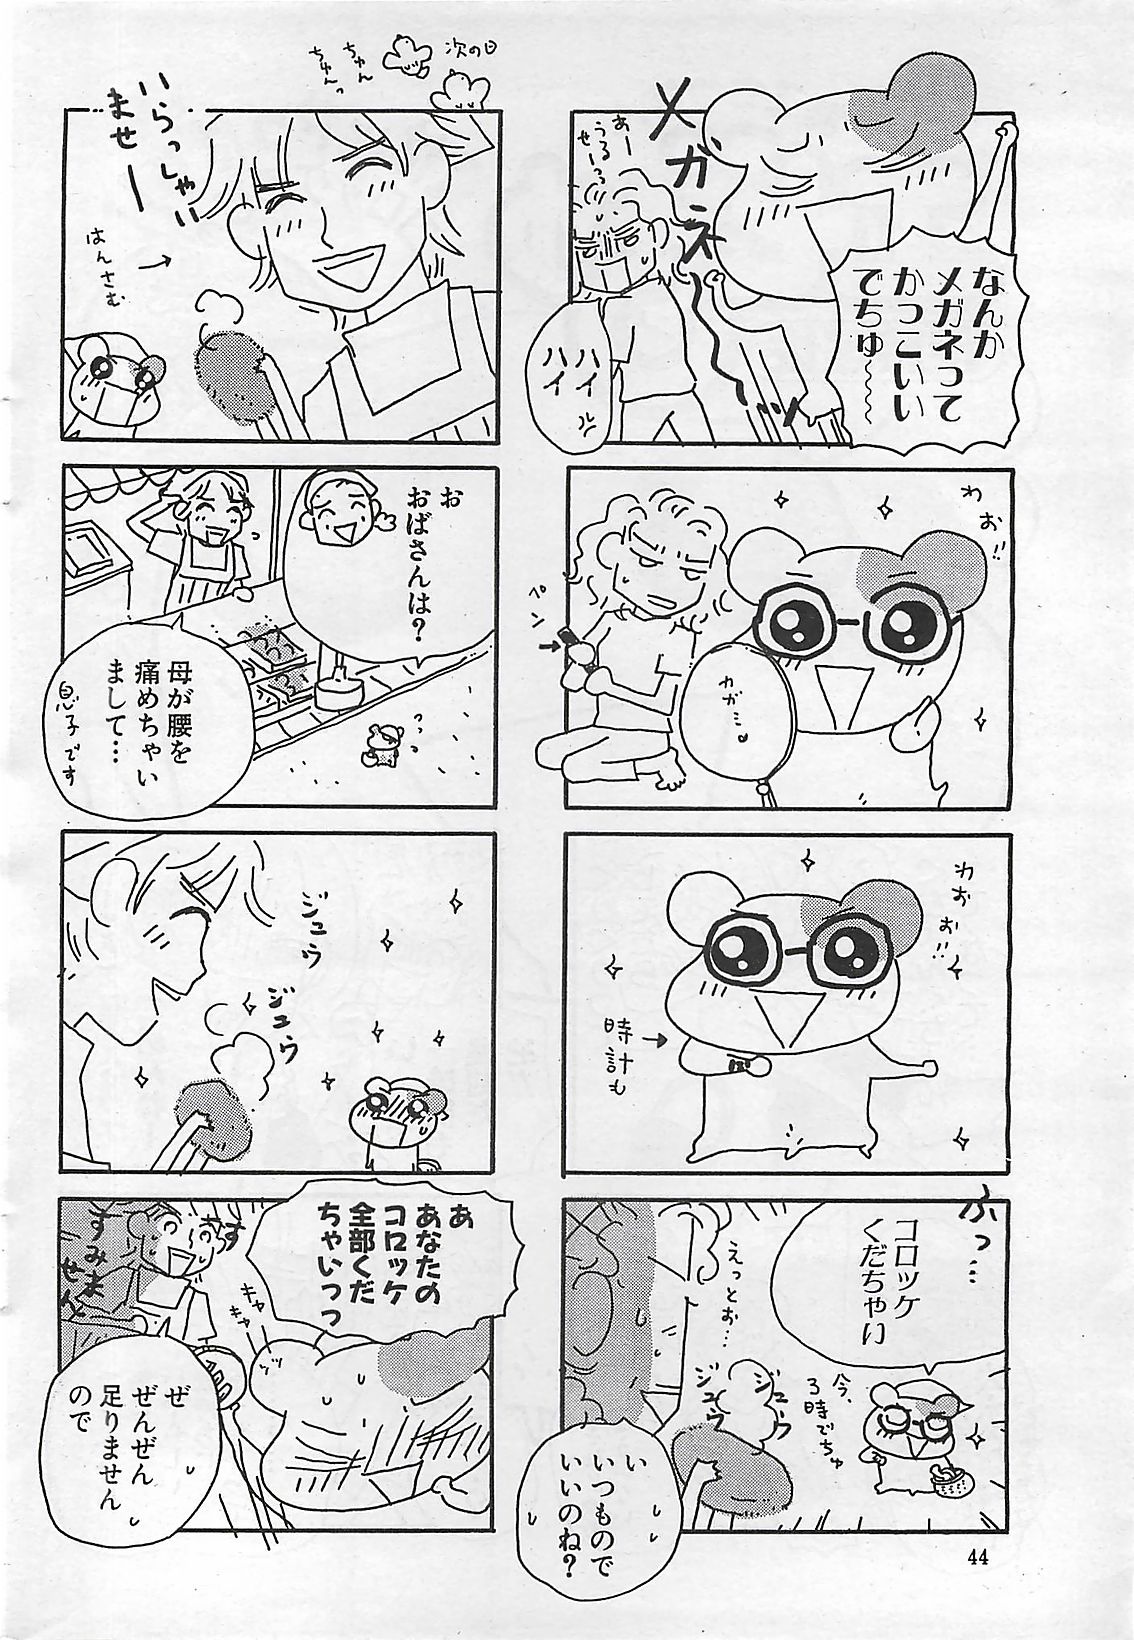 メガネ〜〜ッ
なんか
メガネって
かっこいい
でちゅ〜〜
あー
うるせーっ
ハイ
ハイ
わお!!
ペン→
わが…
わおお!!
時計も→
ふっ…
コロッケ
くだちゃい
今、
3時でちゅ
えっとぉ…
ジュウ
ジュウ
い
いつもので
いいのね?
次の日
ちゅん
ちゅんっ
いらっしゃい
ませー
はんさむ→
お
おばさんは?
母が腰を
痛めちゃい
まして…
息子です
っっ
ジュウ
ジュウ
あ
あなたの
コロッケ
全部くだ
ちゃいっっ
す
すみま
せん
キャ
キャ
ぜ
ぜんぜん
足りません
ので
44